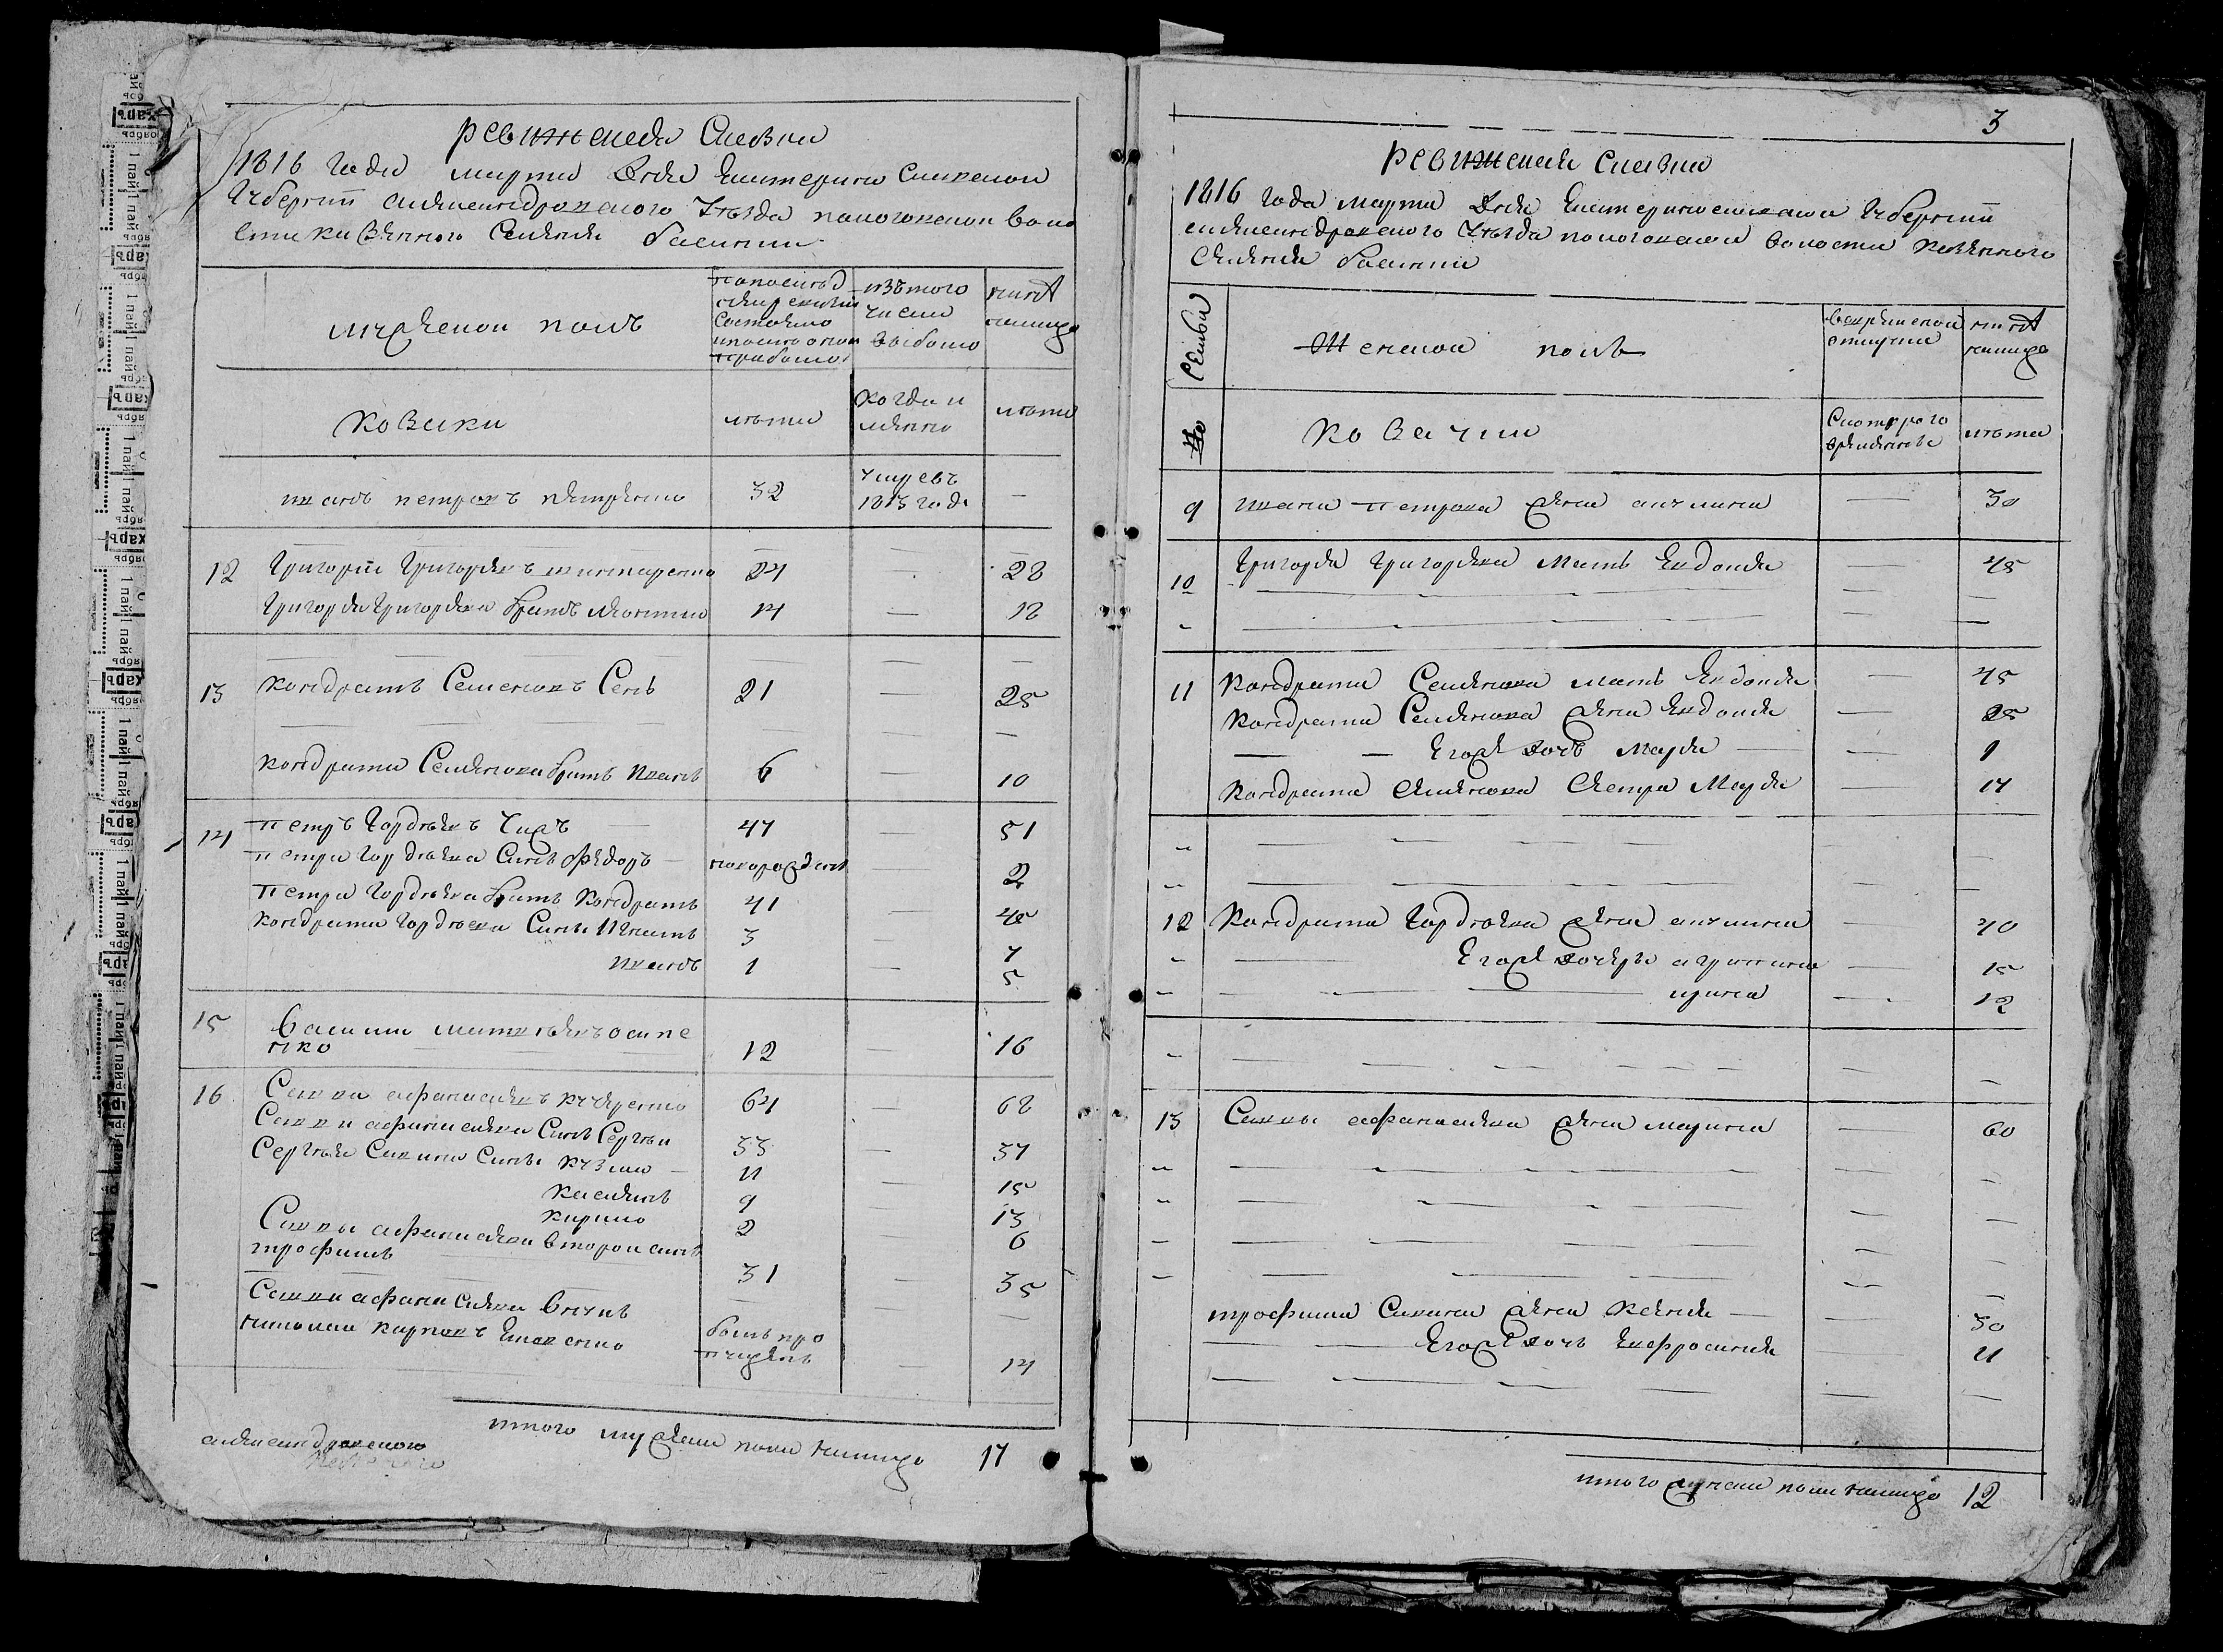 ревижская Сказка
1816 года марта Дня Екатеринославской
Губернiи александровского Уезда пологовской воло
сти казенного Селения басани
мужеской полъ
попоследней
ревизiи
состояло
и после оной
прибыло
изътого
числа
выбыло
ныне
налицо
козаки
лета
когда и
имянно
лета
иванъ петровъ петренко
32
умре въ
1813 годе
—
12
Григорiй Григорьевъ
24
28
Григорья Григорьева братъ леонтий
14
18
13
Кондратъ Семеновъ Сень
21
25
Кондрата Семенова братъ иванъ
6
10
14
петръ Гордеевъ Чижъ
47
51
петра Гордеева Сынъ федоръ
новорожденъ
2
петра Гордеева братъ Кондратъ
41
45
Кондрата Гордеева Сыны Игнатъ
3
7
иванъ
1
5
15
Василий матвеевъ осипе
нко
12
16
16
Савва афанасьевъ кучеренко
64
68
Саввы афанасьева Сынъ Сергей
33
37
Сергея Савина Сыны кузма
11
15
касьянъ
9
13
кирило
2
6
Саввы афанасьева второй сынъ
трофимъ
31
35
Саввы афанасьева внукъ
карповъ
былъ про
пущенъ
14
итого мужеска пола налицо 17
александровского
3
ревижская сказка
1816 года марта Дня Екатеринославской Губернiи
александровского Уезда пологовской волости казенного
Селения басани
Семьи
Женской полъ
во временной
отлучке
ныне
налицо
No
козачки
Скоторого
времени
лета
9
ивана петрова жена анна
30
10
Григорья Григорьева мать Евдокия
45
11
Кондрата Семенова мать Евдокия
45
Кондрата Семенова жена Евдокия
25
Его же дочь марья
1
Кондрата Семенова Сестра марья
17
12
Кондрата Гордеева жена
40
Его же дочери агрипина
15
ирина
12
13
Саввы афанасьева жена марина
60
трофима Савина жена Ксения
30
Его же дочь Евфросиния
11
итого женска пола налицо 12